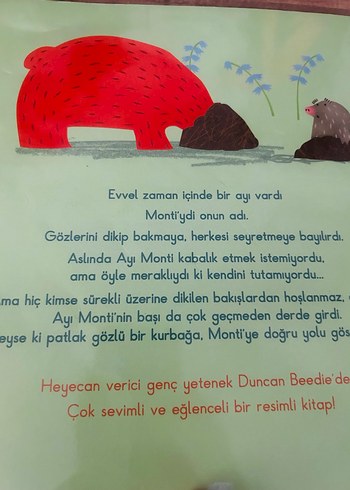 Evvel zaman içinde bir ayı vardı
Monti'ydi onun adı.
Gözlerini dikip bakmaya, herkesi seyretmeye bayılırdı.
Aslında Ayı Monti kabalık etmek istemiyordu,
ama öyle meraklıydı ki kendini tutamıyordu...
ma hiç kimse sürekli üzerine dikilen bakışlardan hoşlanmaz,
Ayı Monti'nin başı da çok geçmeden derde girdi.
eyse ki patlak gözlü bir kurbağa, Monti'ye doğru yolu gös
Heyecan verici genç yetenek Duncan Beedie'de
Çok sevimli ve eğlenceli bir resimli kitap!